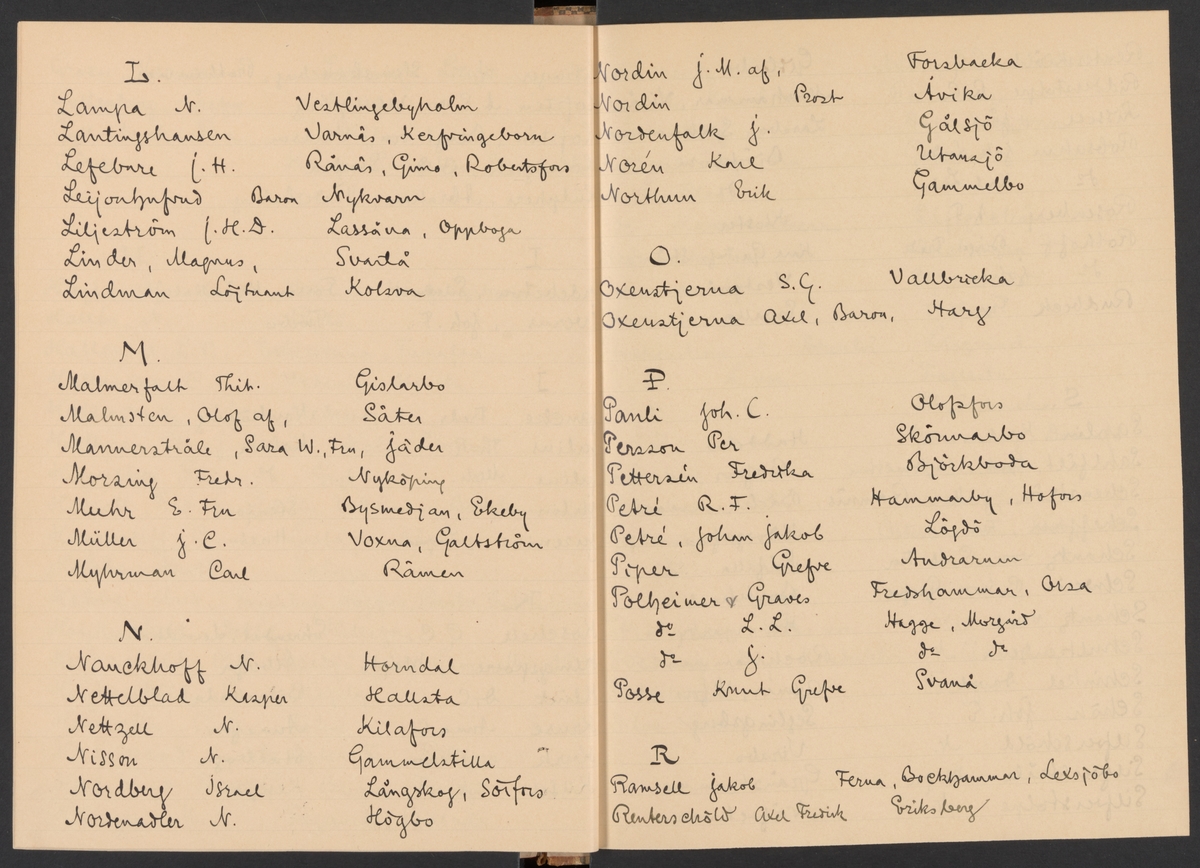 L.
Lampa N. Vestlingebyholm
Lantingshausen Varnäs, Kerfvingeborn
Lefebure J. H. Rånäs, Gimo, Robertsfors
Leijonhufvud Baron Nykvarn
Liljeström J. H. D. Lassåna, Oppboga
Linder, Magnus, Svartå
Lindman Löjtnant Kolsva
M.
Malmerfalt Thit. Gislarbo
Malmsten, Olof af, Säter
Mannerstråle, Sara W., Fru, Jäder
Morsing Fredr. Nyköping
Muhr E. Fru Bysmedjan, Ekeby
Müller J. C. Voxna, Galtström
Myhrman Carl Rämen
N.
Nauckhoff N. Horndal
Nettelblad Kasper Hallsta
Nettzell N. Kilafors
Nisson N. Gammelstilla
Nordberg Israel Långskog, Sörfors
Nordenadler N. Högbo
Nordin J. M. af, Forsbacka
Nordin Prost Åvika
Nordenfalk J. Gålsjö
Norén Karl Utansjö
Northun Erik Gammelbo
O.
Oxenstjerna S. G. Vallbricka
Oxenstjerna Axel, Baron, Harg
P.
Pauli Joh. C. Olofsfors
Persson Per Skönnarbo
Pettersén Fredrika Björkboda
Petré R. F. Hammarby, Hofors
Petré, Johan Jakob Lögdö
Piper Grefve Andrarum
Polheimer & Graves Fredshammar, Orsa
do L. L. Hagge, Morgård
do J. do do
Posse Knut Grefve Svanå
R
Ramsell Jakob Ferna, Bockhammar, Lexsjöbo
Renterschöld Axel Fredrik Eriksberg